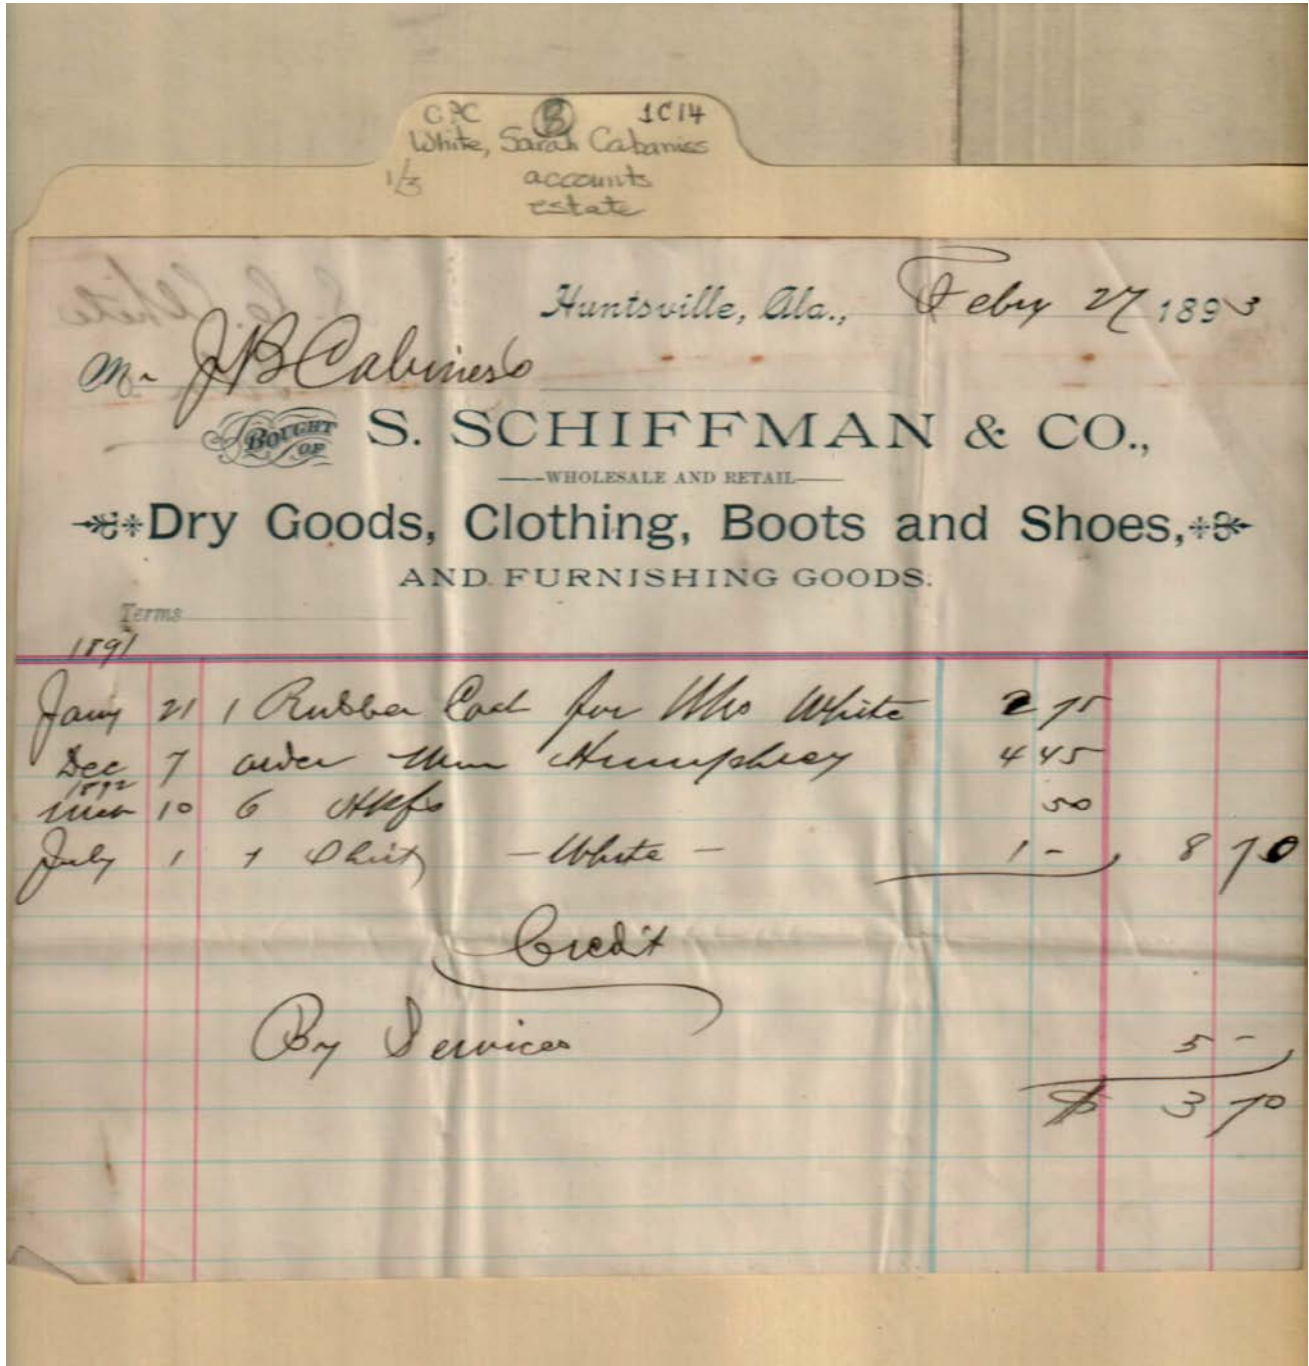 CPC B 1C14
White, Sarah Cabaniss
1/3 accounts
estate
S. C. White
Huntsville, Ala., Feby 27 1893
Mr J B Cabiness
BOUGHT OF S. SCHIFFMAN & CO.,
WHOLESALE AND RETAIL
Dry Goods, Clothing, Boots and Shoes,
AND FURNISHING GOODS.
Terms
1891
Jany 21 1 Rubber Coat for Mrs White 2 75
Dec 7 order Wm Humphrey 4 45
1892
Mch 10 6 Hkfs 50
July 1 1 Shirt - White - 1 - 8 70
Credit
By Services 5 -
$ 3 70